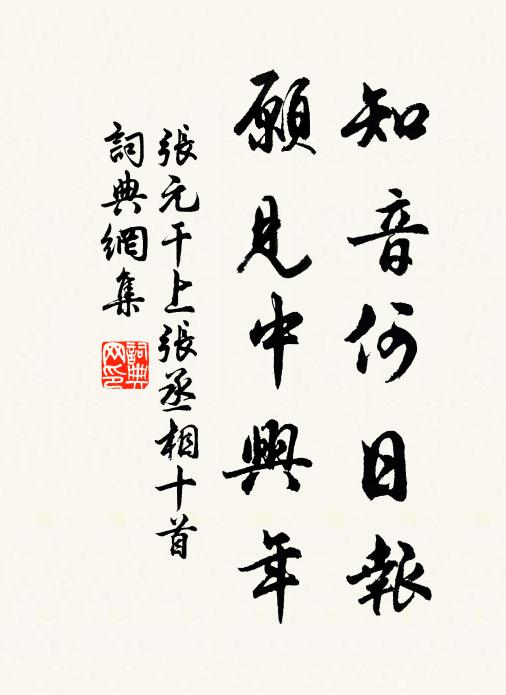 知音何日報
願見中興年
張元干上張丞相十首
詞典網集
詞典网印